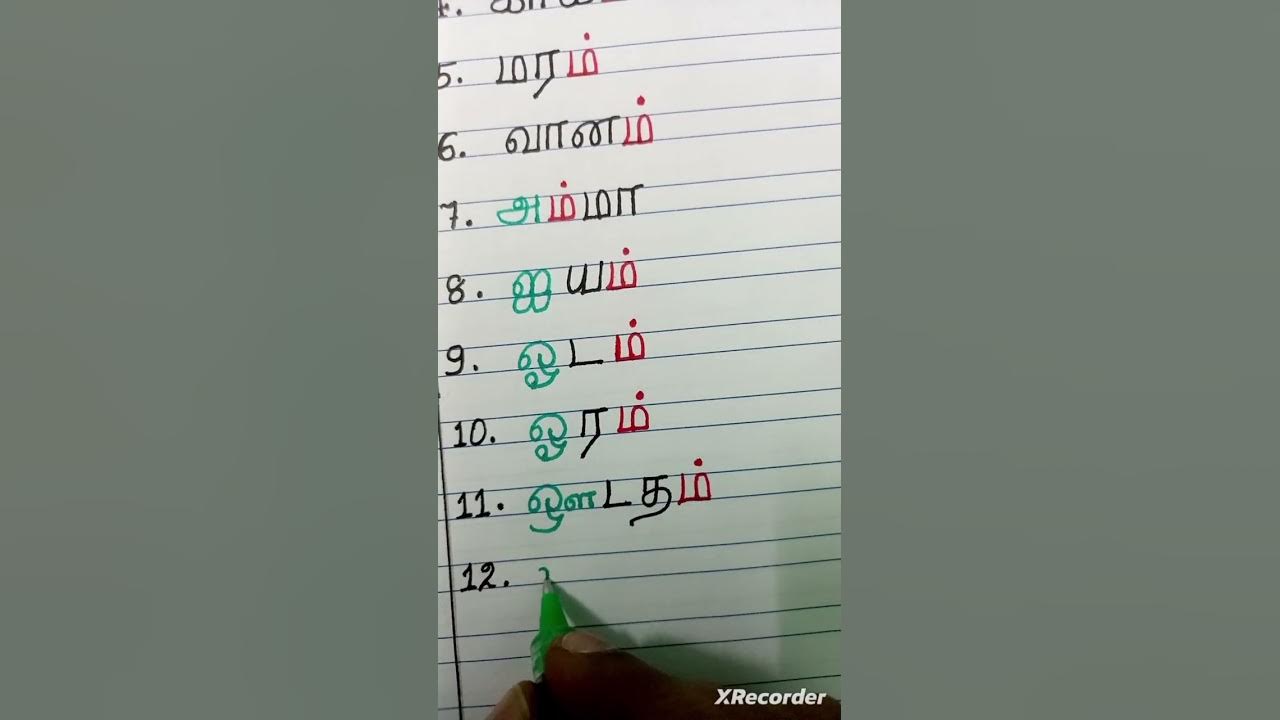 4.
5. மரம்
6. வானம்
7. அம்மா
8. ஐயம்
9. ஓடம்
10. ஓரம்
11. ஔடதம்
12.
XRecorder